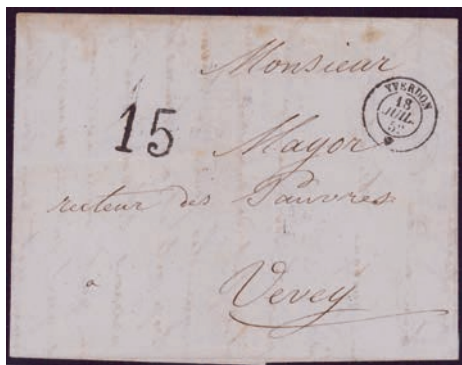 Monsieur
YVERDON
18
JUIL.
52
15
Mayor
recteur des Pauvres
à
Vevey